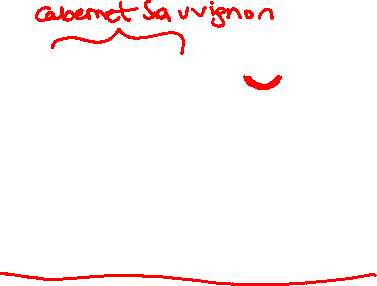 Cabernet Sauvignon